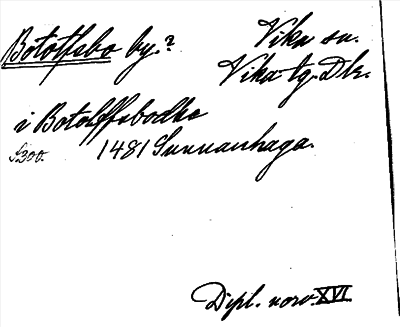 Botolfsbo by.?
Vika sn.
Vika tg. Dlr.
i Botolffsbodhe
S. 300. 1481 Sunnanhaga.
Dipl. norv. XVI